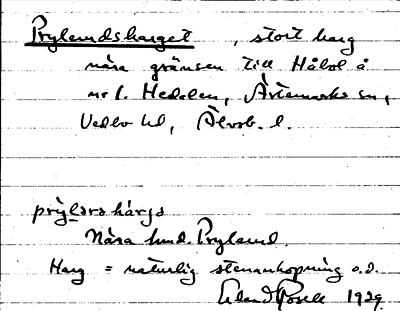 Prylerudsharget, stort harg
nära gränsen till Håbol å
Hedalen, Ärtemarks sn,
Vedbo hd, Älvsb. l.
Nära hmd. Prylerud.
Harg = naturlig stenanhopning o.d.
Erland Rosell 1929